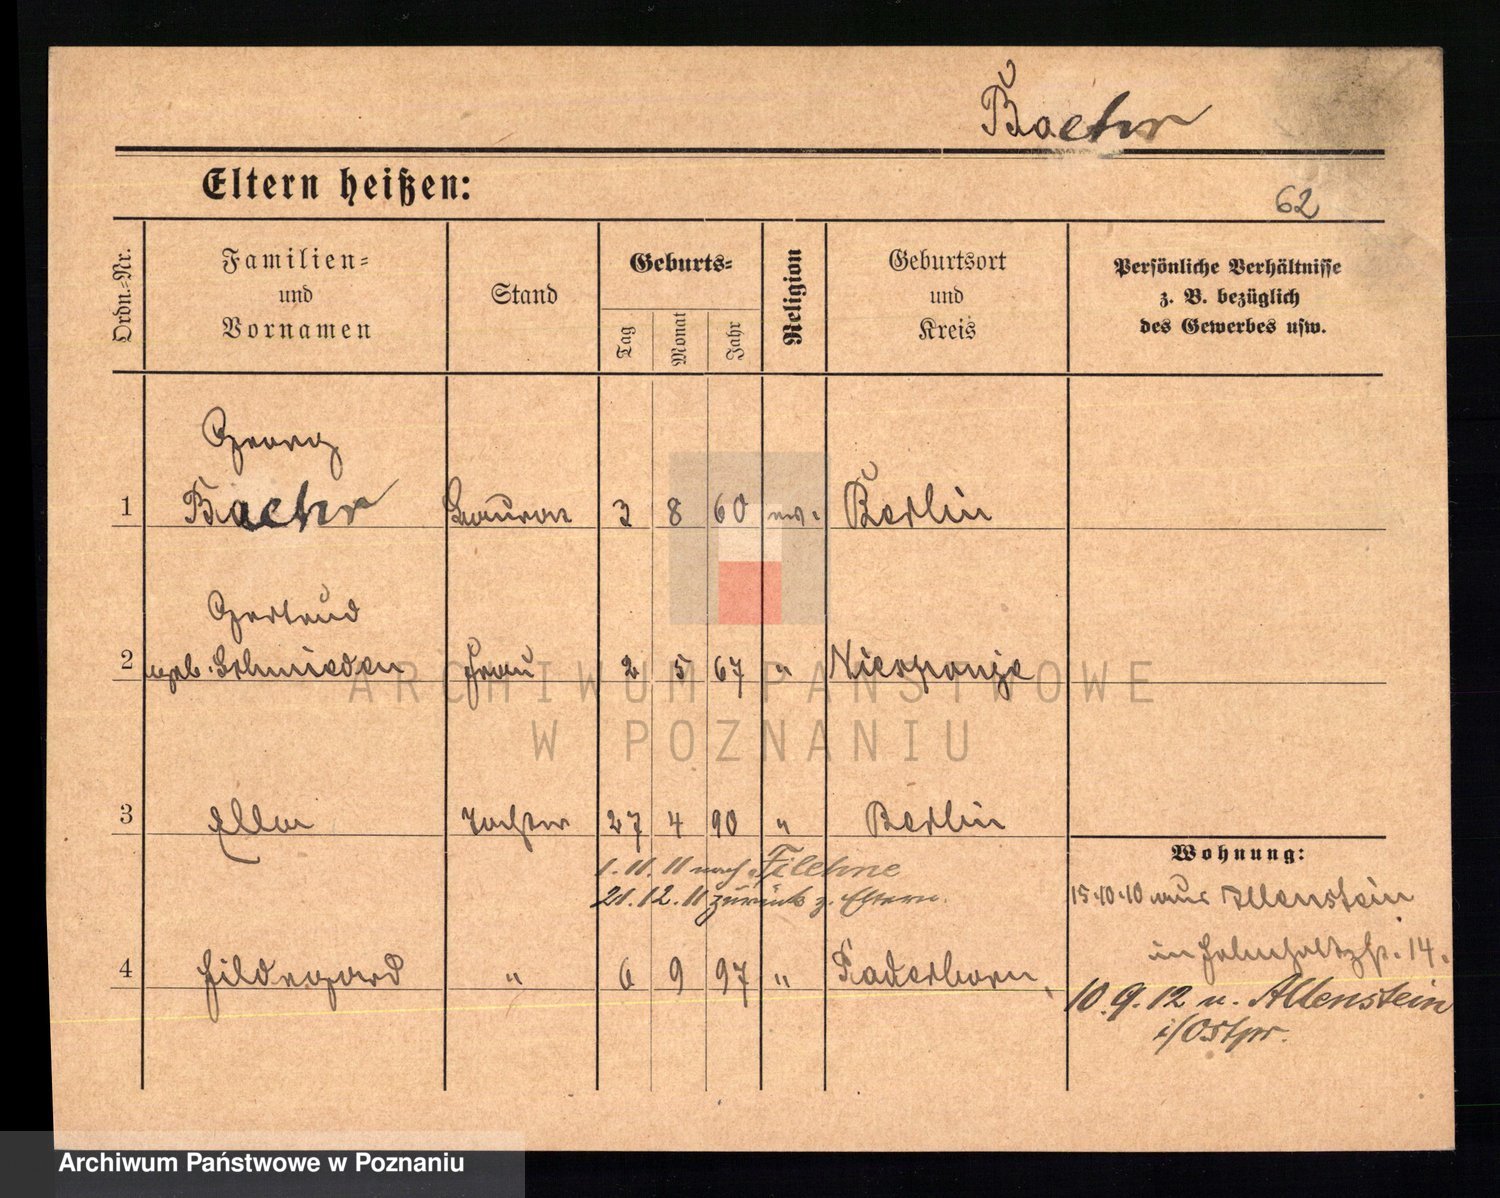 Baehr
Eltern heißen:
62
Ordn.-Nr.
Familien-
und
Vornamen
Stand
Geburts-
Tag
Monat
Jahr
Religion
Geburtsort
und
Kreis
Persönliche Verhältnisse
z. B. bezüglich
des Gewerbes usw.
Georg
1 Baehr 3 8 60 ev. Berlin
Gertrud
2 geb. Schmieden Frau 2 5 67 "
3 Ella Tochter 27 4 90 " Berlin
1.11.11 nach Filehne
21.12.11 zurück z. Eltern.
Wohnung:
15.10.10 aus Allenstein
14.
4 Hildegard " 6 9 97 " Paderborn
10.9.12 n. Allenstein
i/Ostpr.
ARCHIWUM PAŃSTWOWE
W POZNANIU
Archiwum Państwowe w Poznaniu